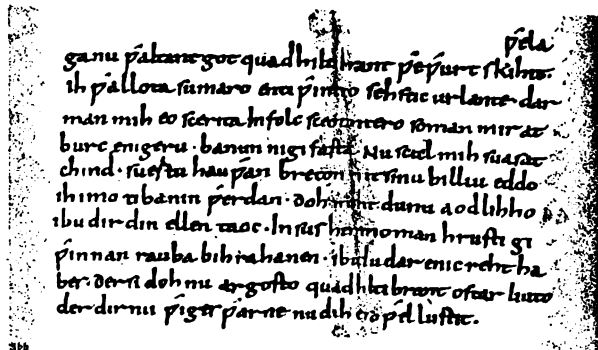 ƿela
ganu ƿaltant got quad hiltibrant ƿeƿurt skihit.
ih ƿallota sumaro enti ƿintro sehstic urlante · dar
man mih eo scerita In folc sceotantero so man mir at
burc enigeru · banun ni gifasta · Nu scal mih suasat
chind · suertu hauƿan breton mit sinu billiu eddo
ih imo ti banin ƿerdan · doh maht du nu aodlihho
ibu dir din ellen taoc · In sus heremo man hrusti gi
ƿinnan rauba bihrahanen · ibu du dar enic reht ha
bes · der si doh nu argosto quad hiltibrant ostar liuto
der dir nu ƿiges ƿarne nu dih es so ƿel lustit ·